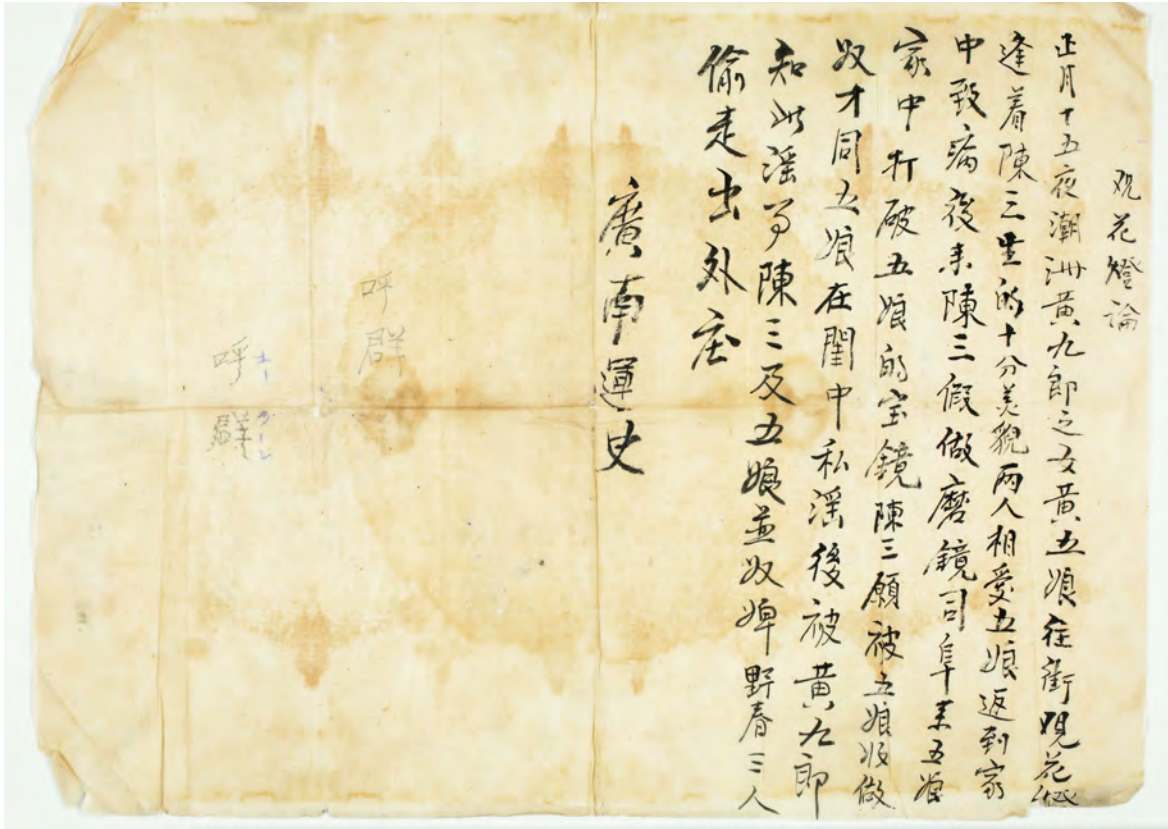 观花燈論
正月十五夜潮洲黄九郎之女黄五娘在街观花燈
逢着陳三生的十分美貌两人相愛五娘返到家
中致病後来陳三假做磨鏡司阜来五娘
家中打破五娘的宝鏡陳三願被五娘收做
奴才同五娘在閨中私淫後被黄九郎
知此淫事陳三及五娘並奴婢野春三人
偷走出外庄
廣南運史
呼群
呼群